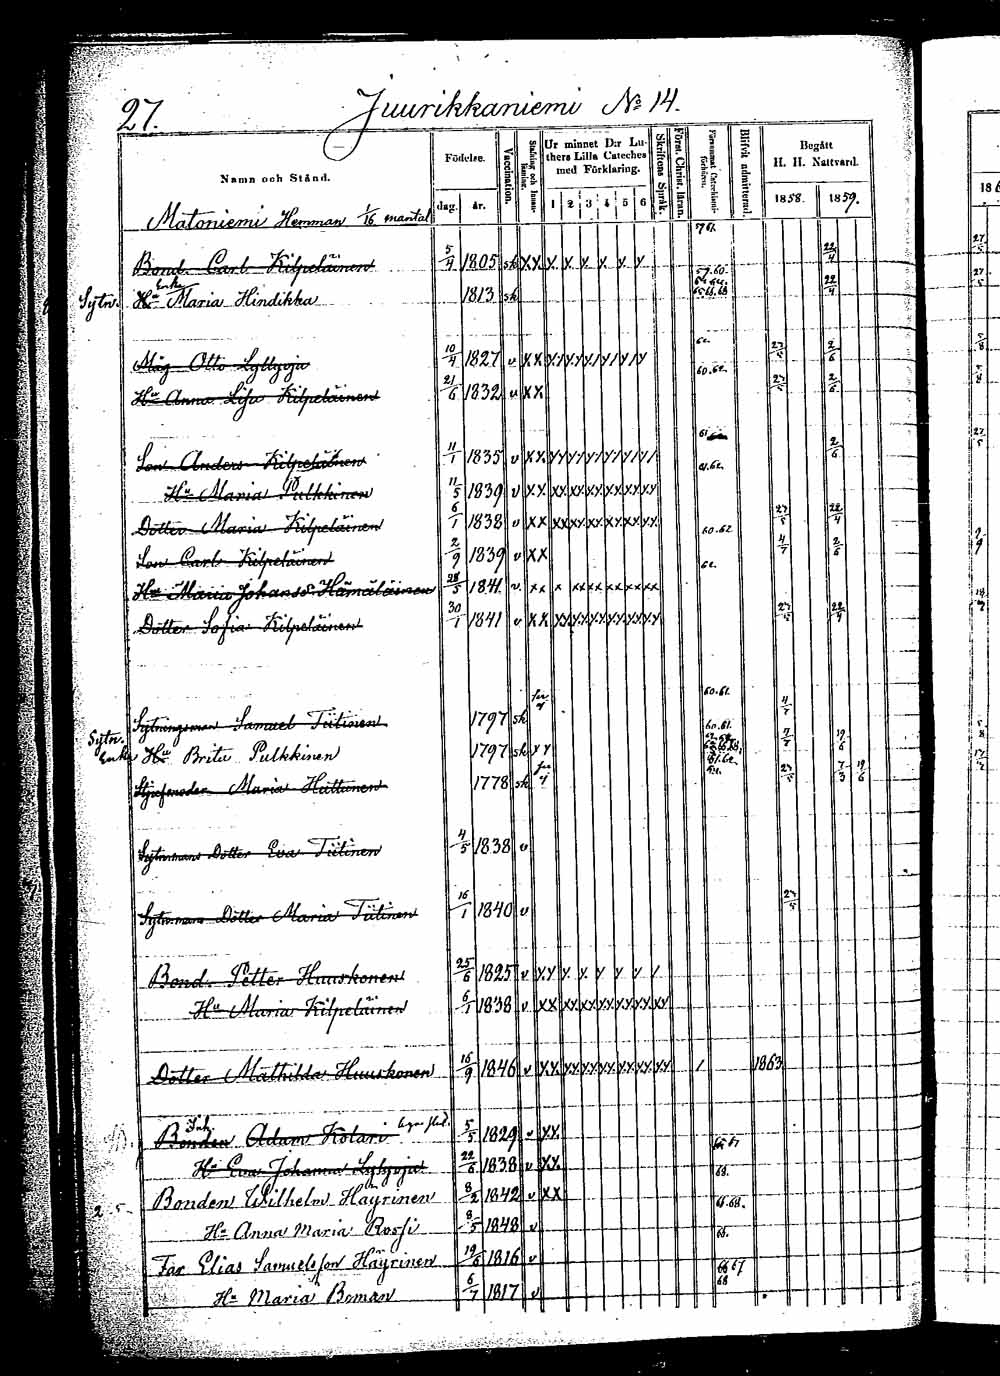 27. Juurikkaniemi No 14.
Namn och Stånd. Födelse. dag. år. Vaccination. Ur minnet D:r Luthers Lilla Cateches med Förklaring. 1 2 3 4 5 6 Skriftens Språk. Först. Christ. läran. Blifvit admitterad. Begått H. H. Nattvard. 1858. 1859.
Matoniemi Hemman 1/16 mantal
Bond. Carl Kilpeläinen 5/4 1805 sk x x x x x x x x 22/4
Sytn. Hu Enka Maria Hindikka 1813 sk 57.60 22/4
Måg Otto Lyllyoja 10/4 1827 v x x 62. 23/5 2/6
Hu Anna Lisa Kilpeläinen 21/6 1832 v x x 60.62. 23/5 2/6
Son Anders Kilpeläinen 11/1 1835 v x x 61 2/6
Hu Maria Pulkkinen 11/5 1839 v x x 61.62.
Dotter Maria Kilpeläinen 6/1 1838 v x x 23/5 22/4
Son Carl Kilpeläinen 2/9 1839 v x x 60.62 4/7 2/6
Hu Maria Johansd. Hämäläinen 28/5 1841. v. x x 62.
Dotter Sofia Kilpeläinen 30/1 1841 v x x 23/5 22/4
Sytningsman Samuel Tiitinen 1797 sk 60.61. 4/7
Sytn. Enka Hu Brita Pulkkinen 1797 sk x x 60.61. 7/7 19/6
Stjufmoder Maria Huttunen 1778 sk 61.62. 23/5 7/3 19/6
Sytnmans Dotter Eva Tiitinen 4/5 1838 v
Sytnmans Dotter Maria Tiitinen 16/1 1840 v 23/5
Bond. Petter Huuskonen 25/6 1825 v x x x x x x x /
Hu Maria Kilpeläinen 6/1 1838 v x x
Dotter Mathilda Huuskonen 16/9 1846 v x x / 1863
Bonden Inh. Adam Kotari 5/5 1829 v x x
Hu Eva Johanna Lyllyoja 22/6 1838 v x x 68.
Bonden Wilhelm Häyrinen 8/2 1842 v x x 68.
Hu Anna Maria Rossi 8/5 1848 v 68.
Far Elias Samuelsson Häyrinen 19/6 1816 v 66 67
Hu Maria Boman 6/7 1817 v 68